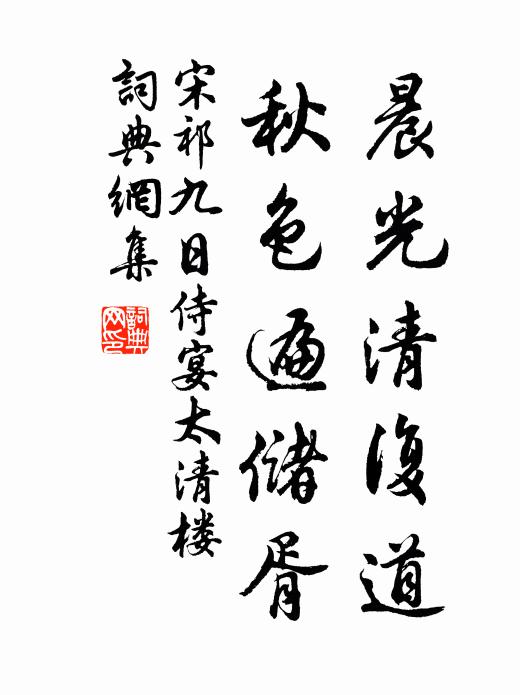 晨光清復道
秋色遍儲胥
宋祁九日侍宴太清楼
詞典網集
詞典网印